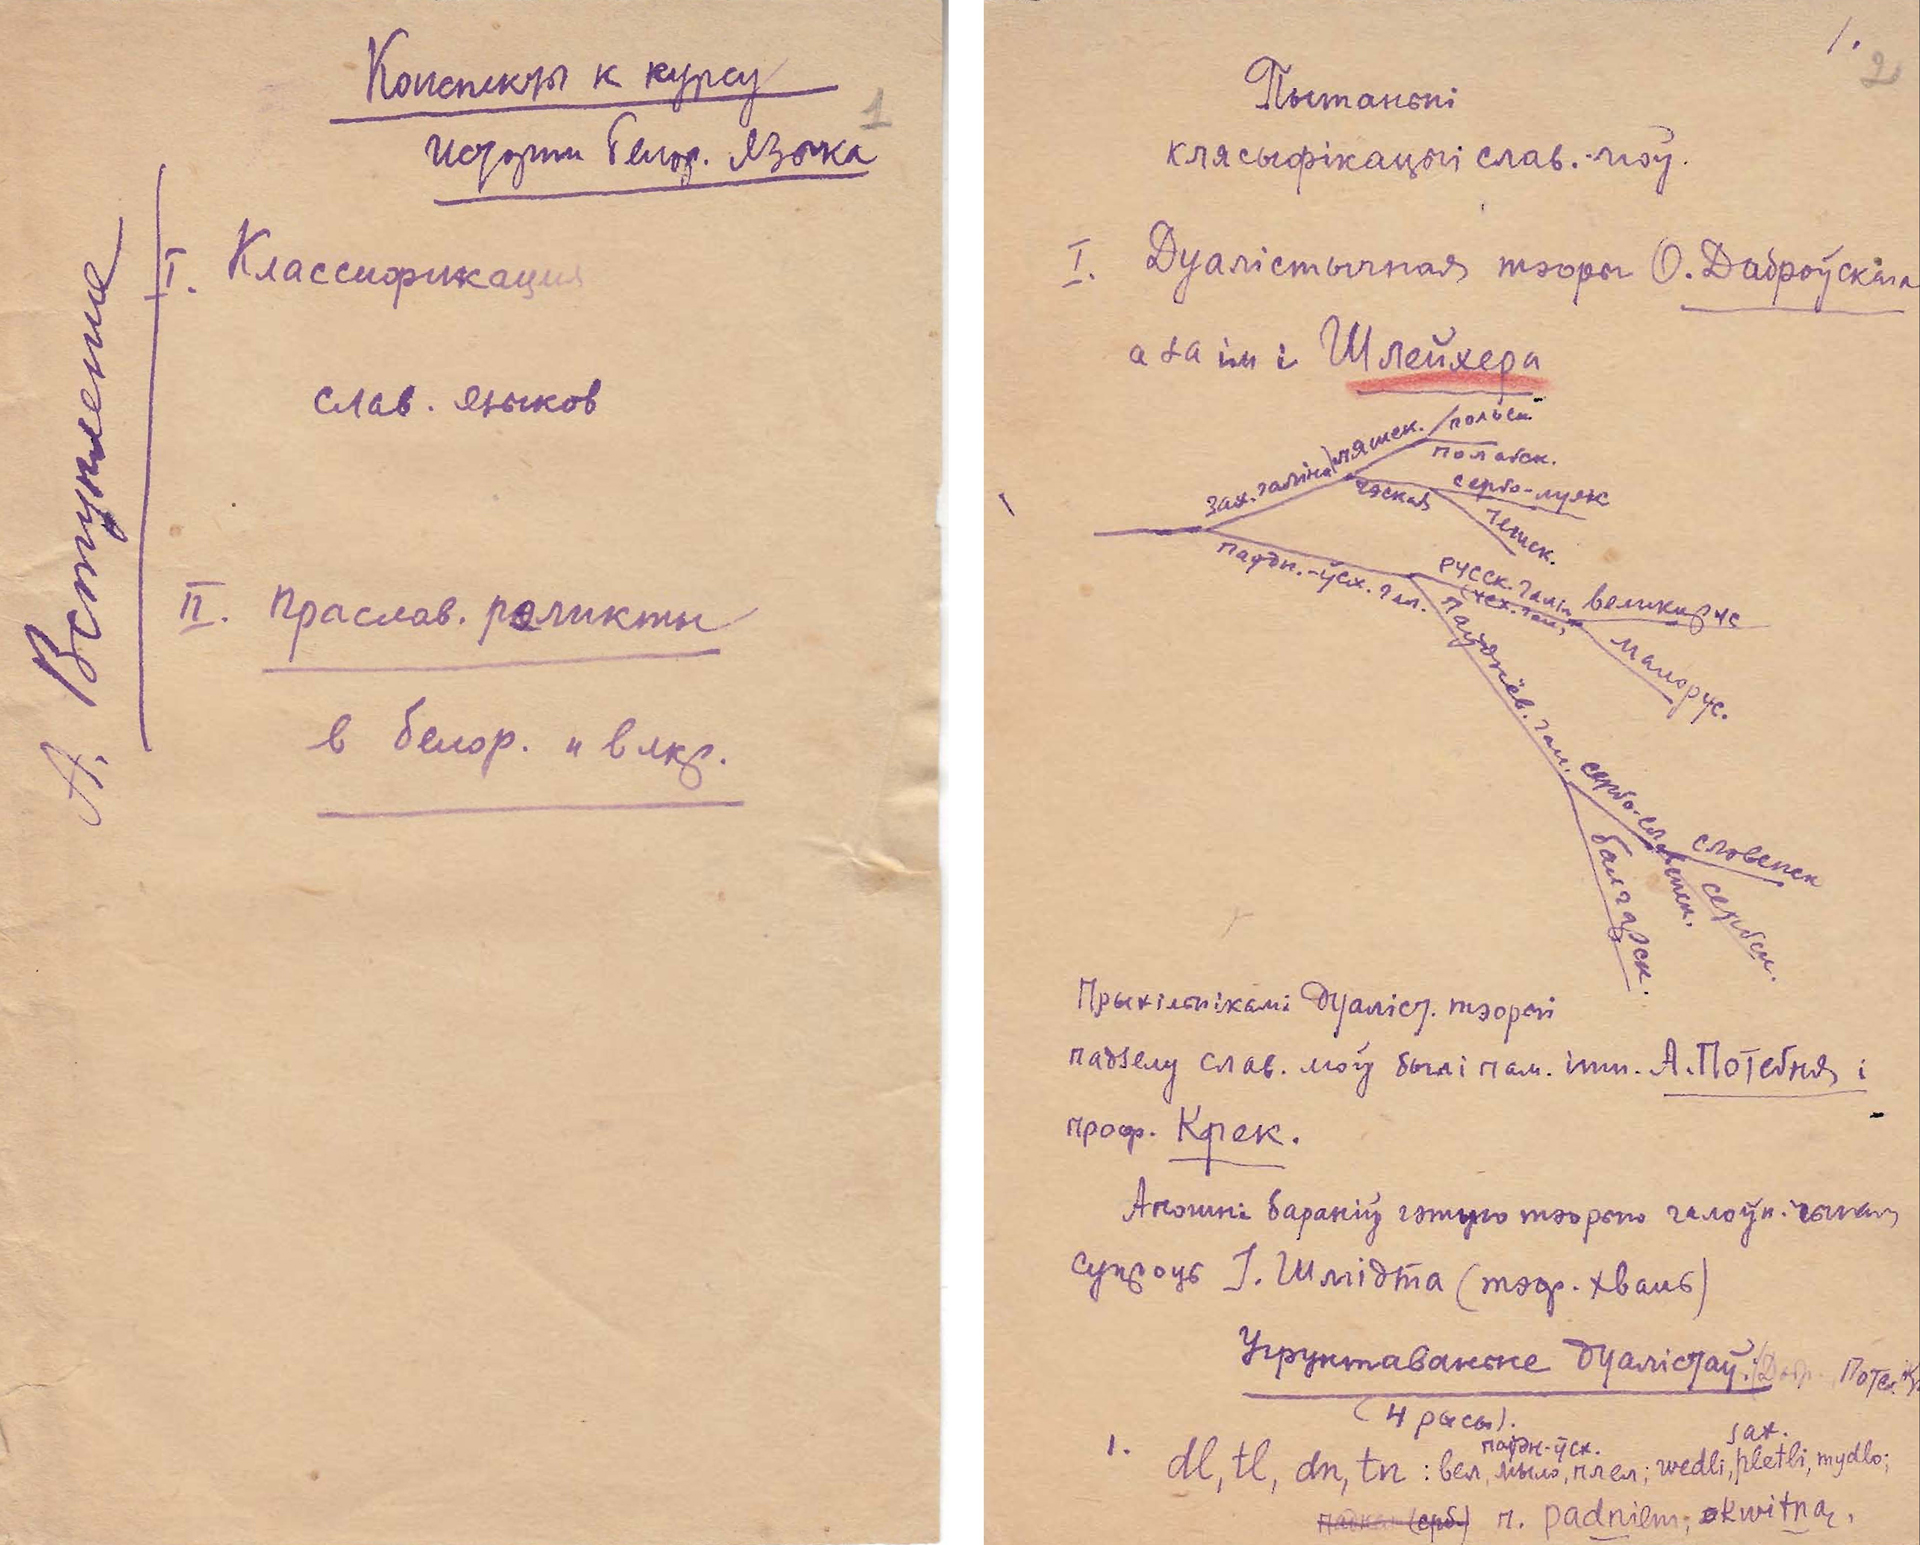 Конспекты к курсу
истории белор. языка
1
А. Вступление
I. Классификация
слав. языков
II. Праслав. реликты
в белор. и влкр.
1.
2
Пытаньні
клясыфікацыі слав. моў.
I. Дуалістычная тэорыя О. Даброўскага
а за ім і Шлейхера
зах. галіна
ляшск.
польск.
полабск.
чэская
сербо-луж
чешск.
паўдн.-ўсх. гал.
русск. галін
(усх. гал.)
великорус
малорус.
паўднёв. гал.
сербо-славенск.
словенск
сербск.
балгарск.
Прыхільнікамі дуаліст. тэорыі
падзелу слав. моў былі пам. інш. А. Потебня і
проф. Крек.
Апошні бараніў гэтую тэорыю галоўн. чынам
супроць І. Шмідта (тэор. хваль)
Угрунтаваньне дуалістаў: (Добр. Потеб.
(4 рысы).
паўдн-ўсх. зах.
1. dl, tl, dn, tn : вел, мыло, плел; wedli, pletli, mydlo;
(срб.) п. padniem; kwitną,